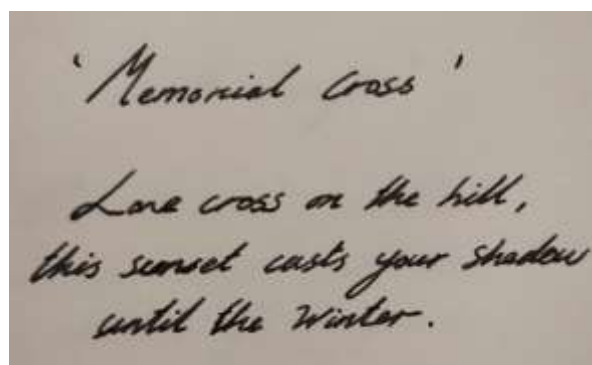 'Memorial Cross'
Lone cross on the hill,
this sunset casts your shadow
until the Winter.